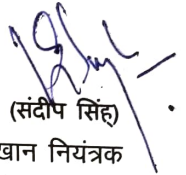 (संदीप सिंह)
खान नियंत्रक